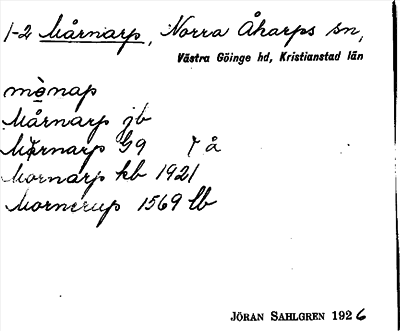 1-2 Mårnarp, Norra Åkarps sn,
Västra Göinge hd, Kristianstad län
mo̱nap
Mårnarp jb
Mornarp G9 å
Mornarp kb 1921
Mornerup 1569 lb
JÖRAN SAHLGREN 1926